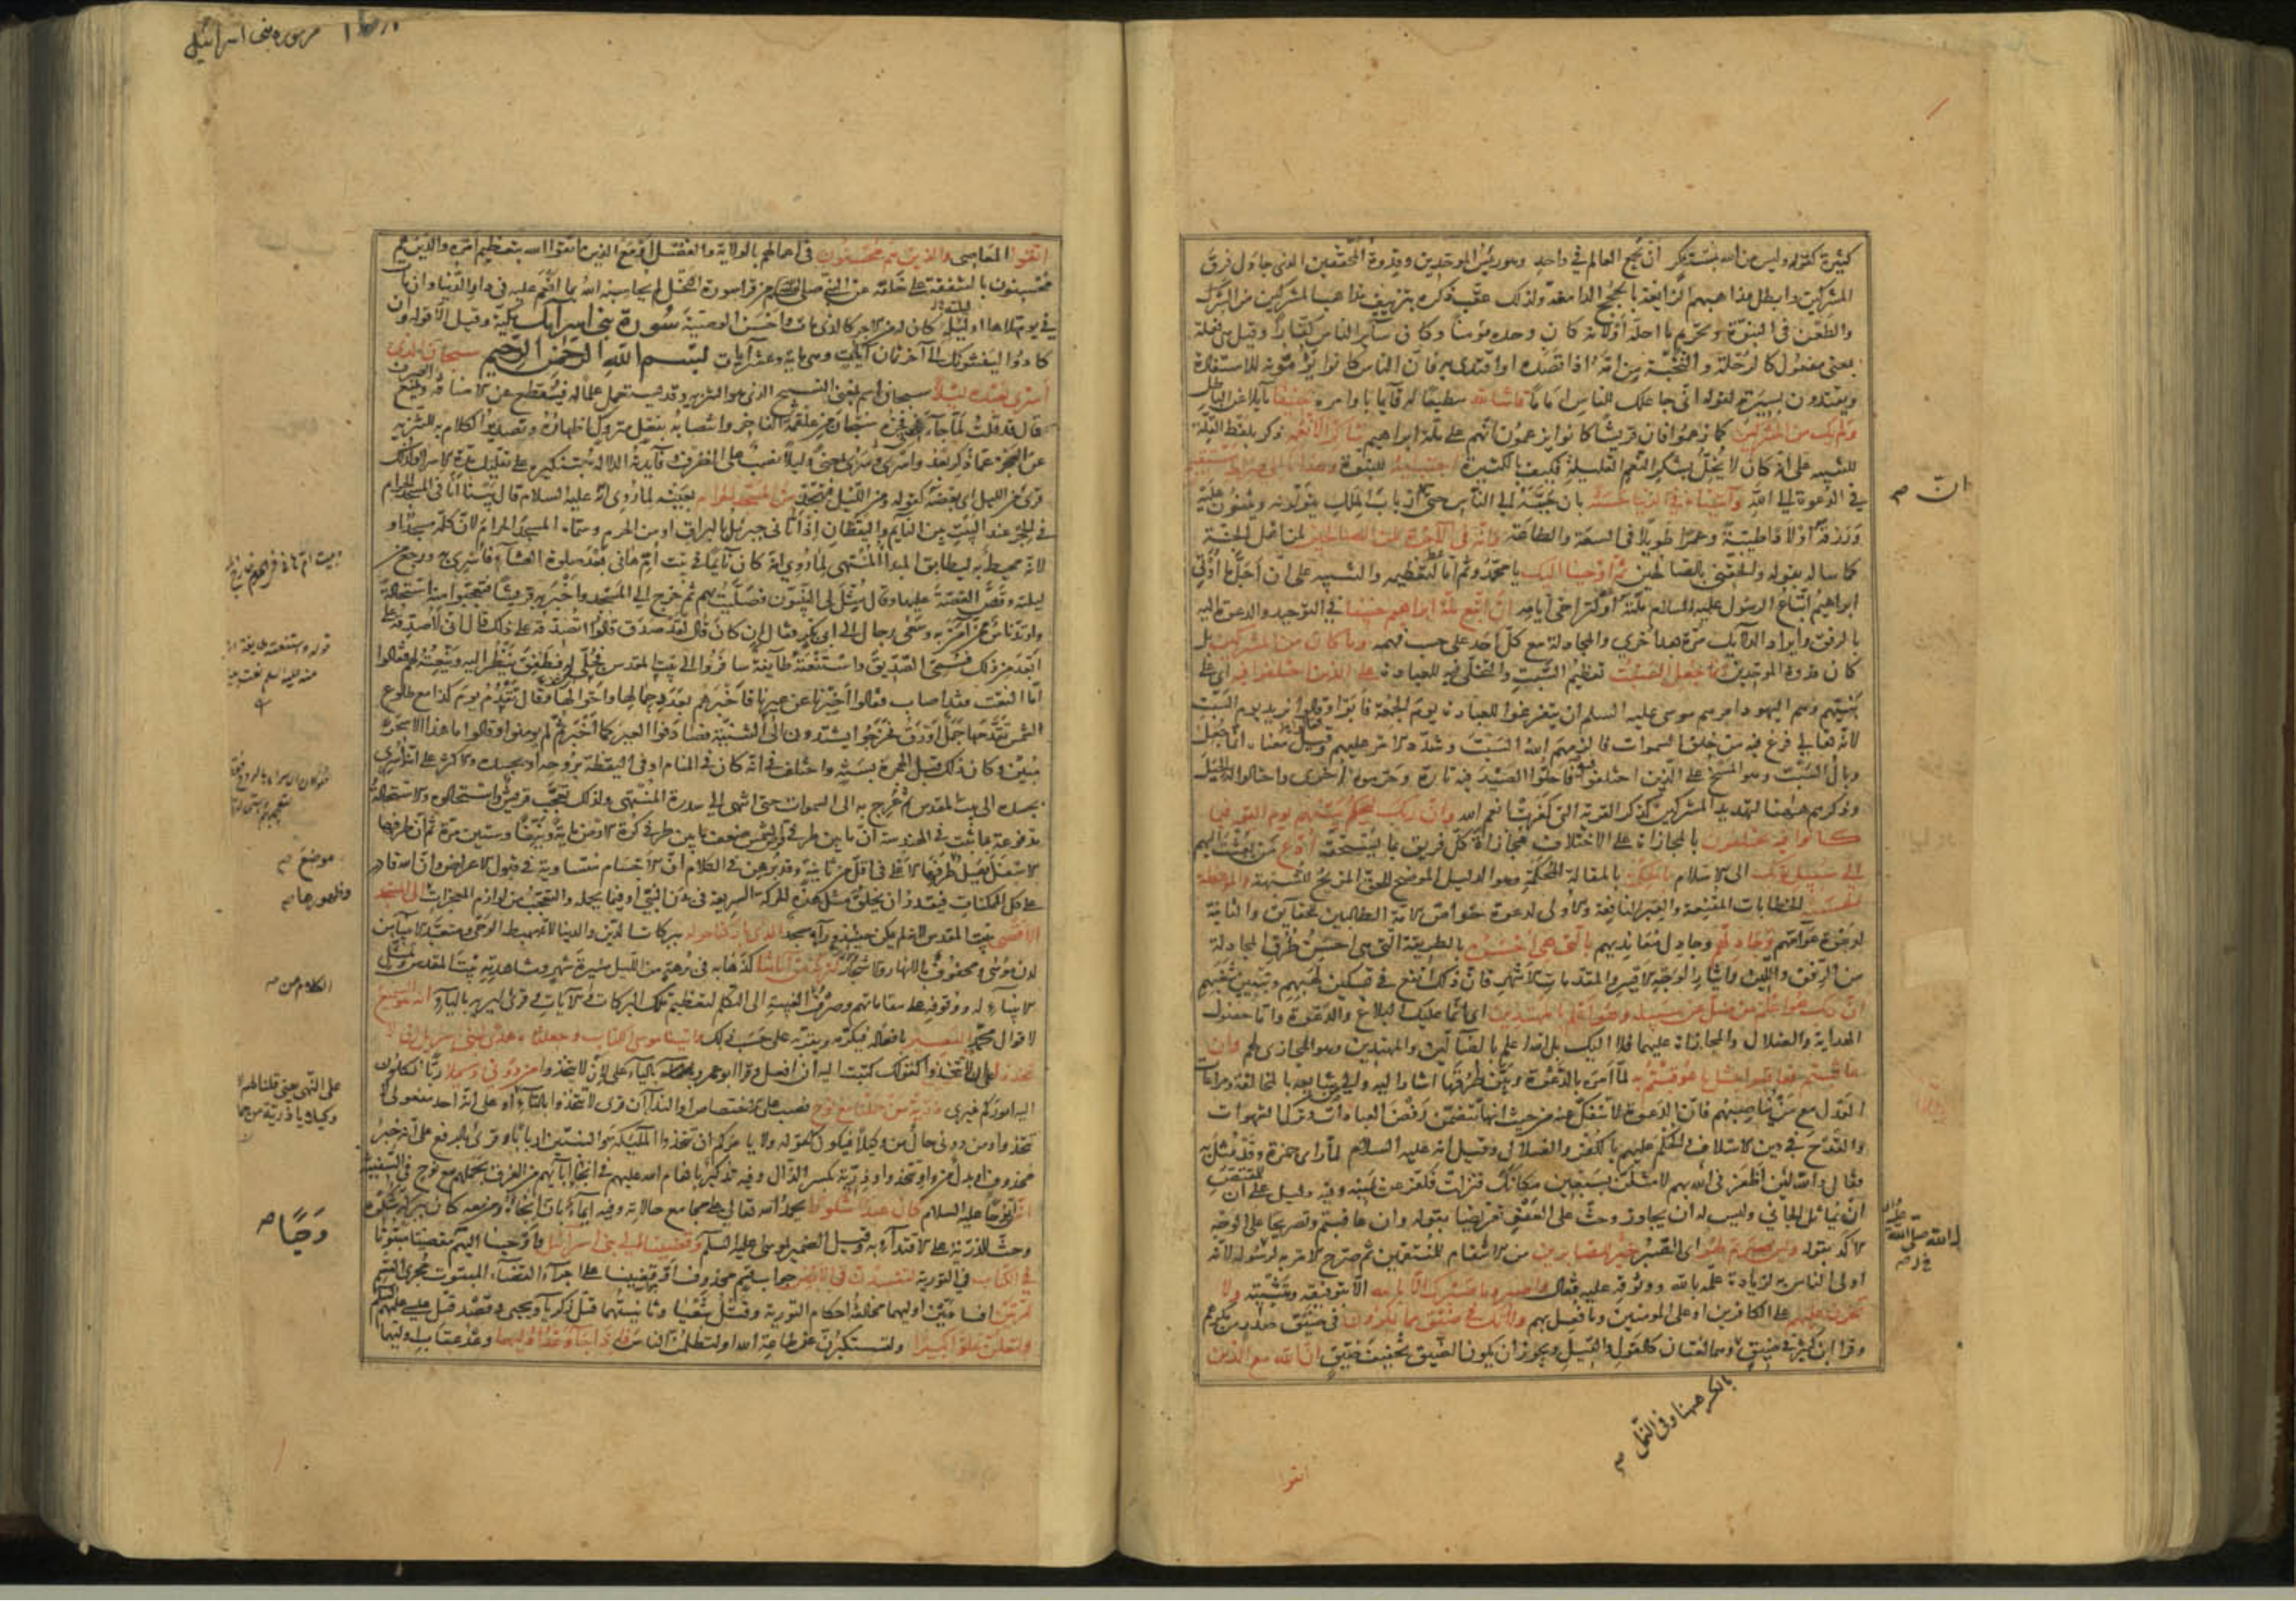 كثيرة كقوله وليس من الله بمستنكر أن يجمع العالم في واحد وهو رئيس الموحدين وقدوة المحققين الذي جادل فرق
المشركين وابطل مذاهبهم الزايغة بالحجج الدامغة ولذلك عقب ذكره بتزييف مذاهب المشركين من الشرك
والطعن في النبوة وتحريم ما احله أو لانه كان وحده مؤمنا وكان سآئر الناس كفارا وقيل هي فعلة
بمعنى مفعول كالرحلة والنخبة من امه اذا قصده او اقتدى به فان الناس كانوا يؤمونه للاستفادة
ويقتدون بسيرته لقوله اني جاعلك للناس اماما قانتا لله مطيعا له قآيما باوامره حنيفا مآيلا عن الباطل
ولم يك من المشركين كما زعموا فان قريشا كانوا يزعمون انهم على ملة ابراهيم شاكرا لانعمه ذكر بلفظ القلة
للتنبيه على انه كان لا يخل بشكر النعم القليلة فكيف بالكثيرة اجتبيه للنبوة وهداه الى صراط مستقيم
في الدعوة الى الله وآتيناه في الدنيا حسنة بان حببه الى الناس حتى ان ارباب الملل يتولونه ويثنون عليه
ورزقه اولادا طيبة وعمرا طويلا في السعة والطاعة وانه في الآخرة لمن الصالحين لمن اهل الجنة
كما ساله بقوله والحقني بالصالحين ثم اوحينا اليك يا محمد وثم اما لتعظيمه والتنبيه على ان اجل ما اوتي
ابراهيم اتباع الرسول عليه السلام ملته أو لتراخي ايامه ان اتبع ملة ابراهيم حنيفا في التوحيد والدعوة اليه
بالرفق وايراد الدلايل مرة بعد اخرى والمجادلة مع كل احد على حسب فهمه وما كان من المشركين بل
كان قدوة الموحدين انما جعل السبت تعظيم السبت والتخلي فيه للعبادة على الذين اختلفوا فيه اي على
نبيهم وهم اليهود امرهم موسى عليه السلم ان يتفرغوا للعبادة يوم الجمعة فابوا وقالوا نريد يوم السبت
لانه تعالى فرغ فيه من خلق السموات فالزمهم الله السبت وشدد الامر عليهم وقيل معناه انما جعل
وبال السبت وهو المسخ على الذين اختلفوا فيه فاحلوا الصيد فيه تارة وحرموه اخرى واحتالوا له الحيل
وذكرهم ههنا لتهديد المشركين كذكر القرية التي كفرت بانعم الله وان ربك ليحكم بينهم يوم القيمة فيما
كانوا فيه يختلفون بالمجازاة على الاختلاف فمجازاة كل فريق بما يستحقه ادع من بعثت اليهم
الى سبيل ربك الى الاسلام بالحكمة بالمقالة المحكمة وهو الدليل الموضح للحق المزيح للشبهة والموعظة
الحسنة الخطابات المقنعة والعبر النافعة والاولى لدعوة خواص الامة الطالبين للحقايق والثانية
لدعوة عوامهم وجادلهم وجادل معانديهم بالتي هي احسن بالطريقة التي هي احسن طرق المجادلة
من الرفق واللين وايثار الوجه الايسر والمقدمات الاشهر فان ذلك انفع في تسكين لهبهم وتبيين شغبهم
ان ربك هو اعلم بمن ضل عن سبيله وهو اعلم بالمهتدين اي انما عليك البلاغ والدعوة واما حصول
الهداية والضلال والمجازاة عليهما فلا اليك بل الله اعلم بالضآلين والمهتدين وهو المجازي لهم وان
عاقبتم فعاقبوا بمثل ما عوقبتم به لما امره بالدعوة وبين طرقها اشار اليه والى من يشايعه بالمخالفة ومراعات
العدل مع من يناصبهم فان الدعوة لا تنفك عنه من حيث انها تتضمن رفض العبادات وترك الشهوات
والقدح في دين الاسلاف والحكم عليهم بالكفر والضلال وقيل انه عليه السلام لما راى حمزة وقد مثل به
فقال والله لئن اظفرني الله بهم لامثلن بسبعين مكانك فنزلت فكفر عن يمينه وفيه دليل على ان للمقتص
ان يماثل الجاني وليس له ان يجاوزه وحث على العفو تعريضا بقوله وان عاقبتم وتصريحا على الوجه
الاكد بقوله ولئن صبرتم لهو اي الصبر خير للصابرين من الانتقام للمنتقمين ثم صرح الامر به لرسوله لانه
اولى الناس به لزيادة علمه بالله ووثوقه عليه فقال واصبر وما صبرك الا بالله الا بتوفيقه وتثبيته ولا
تحزن عليهم على الكافرين او على المومنين وما فعل بهم ولا تك في ضيق مما يمكرون في ضيق صدر من مكرهم
وقرا ابن كثير في ضيق وهما لغتان كالقول والقيل ويجوز ان يكون الضيق تخفيف ضيق ان الله مع الذين
ان صح
بالكسر ههنا وفي النمل صح
اتقوا
سوره بني اسرائيل
اتقوا المعاصي والذين هم محسنون في اعمالهم بالولاية والفضل او مع الذين اتقوا الله بتعظيم امره والذين هم
محسنون بالشفقة على خلقه عن النبي صلى الله عليه وسلم من قرا سورة النحل لم يحاسبه الله بما انعم عليه في دار الدنيا وان مات
في يوم تلاها او ليلته كان له من الاجر كالذي مات واحسن الوصية سورة بني اسرآئيل مكية وقيل الا قوله وان
كادوا ليفتنونك الى آخر ثمان آيات وهي مائة وعشر آيات بسم الله الرحمن الرحيم سبحان الذي
اسرى بعبده ليلا سبحان اسم بمعنى التسبيح الذي هو التنزيه وقد يستعمل علما له فيقطع عن الاضافة ويمنع الصرف
قال قد قلت لما جاءني فخره سبحان من علقمة الفاخر وانتصابه بفعل متروك اظهاره وتصدير الكلام به للتنزيه
عن العجز عما ذكر بعد واسرى وسرى بمعنى وليلا نصب على الظرف وفآيدته الدلالة بتنكيره على تقليل مدة الاسرا ولذلك
قرئ من الليل اي بعضه كقوله ومن الليل فتهجد من المسجد الحرام بعينه لما روي انه عليه السلام قال بينا انا في المسجد الحرام
في الحجر عند البيت بين النآيم واليقظان اذ أتاني جبرئيل بالبراق او من الحرم وسماه المسجد الحرام لان كله مسجد او
لانه محيط به ليطابق المبدأ المنتهى لما روي انه كان نآيما في بيت ام هاني بعد صلوة العشآء فاسري به ورجع من
ليلته وقص القصة عليها وقال مثل لي النبيون فصليت بهم ثم خرج الى المسجد واخبر به قريشا فتعجبوا منه استحالة
وارتد ناس ممن آمن به وسعى رجال الى ابي بكر فقال ان كان قال لقد صدق فقالوا اتصدقه على ذلك قال اني لاصدقه على
ابعد من ذلك فسمي الصديق واستنعته طآيفة سافروا الى بيت المقدس فجلي له فطفق ينظر اليه وينعته لهم فقالوا
اما النعت فقد اصاب فقالوا اخبرنا عن عيرنا فاخبرهم بعدد جمالها واحوالها وقال تقدم يوم كذا مع طلوع
الشمس يقدمها جمل اورق فخرجوا يشتدون الى الثنية فصادفوا العير كما اخبر ثم لم يومنوا وقالوا ما هذا الا سحر
مبين وكان ذلك قبل الهجرة بسنة واختلف في انه كان في المنام او في اليقظة بروحه او بجسده والاكثر على انه اسري
بجسده الى بيت المقدس ثم عرج به الى السموات حتى انتهى الى سدرة المنتهى ولذلك تعجب قريش واستحالوه والاستحالة
مدفوعة بما ثبت في الهندسة ان ما بين طرفي قرص الشمس ضعف ما بين طرفي كرة الارض مائة ونيفا وستين مرة ثم ان طرفها
الاسفل يصل طرفها الاعلى في اقل من ثانية وقد برهن في الكلام ان الاجسام متساوية في قبول الاعراض وان الله قادر
على كل الممكنات فيقدر ان يخلق مثل هذه الحركة السريعة في بدن النبي او فيما يحمله والتعجب من لوازم المعجزات الى المسجد
الاقصى بيت المقدس لانه لم يكن حينئذ ورآءه مسجد الذي باركنا حوله ببركات الدين والدنيا لانه مهبط الوحي ومتعبد الانبيآء من
لدن موسى ومحفوف بالانهار والاشجار لنريه من آياتنا كذهابه في برهة من الليل مسيرة شهر ومشاهدته بيت المقدس وتمثل
الانبيآء له ووقوفه على مقاماتهم وصرف الغيبة الى التكلم لتعظيم تلك البركات والآيات وقرئ ليريه باليآء انه هو السميع
لاقوال محمد البصير بافعاله فيكرمه ويقربه على حسب ذلك وآتينا موسى الكتاب وجعلناه هدى لبني اسرآئيل ان لا
تتخذوا على ان لا تتخذوا كقولك كتبت اليه ان افعل وقرا ابو عمرو باليآء على لأن لا يتخذوا من دوني وكيلا ربا تكلون
اليه اموركم غيري ذرية من حملنا مع نوح نصب على الاختصاص او الندآء ان قرئ لا تتخذوا بالتآء او على انه احد مفعولي لا
تتخذوا ومن دوني حال من وكيلا فيكون كقوله ولا يامركم ان تتخذوا الملئكة والنبيين اربابا وقرئ بالرفع على انه خبر
محذوف او بدل من واو تتخذوا وذرية بكسر الذال وفيه تذكير بانعام الله عليهم في انجآء ابآئهم من الغرق بحملهم مع نوح في السفينة
انه ان نوحا عليه السلام كان عبدا شكورا يحمد الله تعالى على مجامع حالاته وفيه ايمآء بان انجآءه ومن معه كان ببركة شكره
وحث للذرية على الاقتدآء به وقيل الضمير لموسى عليه السلم وقضينا الى بني اسرآئيل واوحينا اليهم مقضيا مبتوتا
في الكتاب في التورية لتفسدن في الارض جواب قسم محذوف او قضينا على اجرآء القضآء المبتوت مجرى القسم
مرتين افسادتين اوليهما مخالفة احكام التورية وقتل شعيا وثانيتهما قتل زكريآ ويحيى وقصد قتل عيسى عليهم السلم
ولتعلن علوا كبيرا ولتستكبرن عن طاعة الله او لتظلمن الناس فاذا جآء وعد اوليهما وعد عقاب اوليهما
موضع صح
وظهورها صح
الكلام من صح
على النهي يعني قلنا لهم لا
وحيا صح